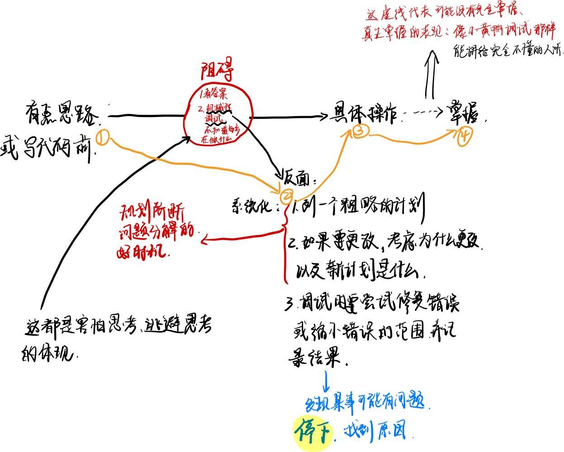 这虚线代表可能没有完全掌握、
真正掌握的表现：像小黄鸭调试那样
能讲给完全不懂的人听.
阻碍
1.看答案
2.机械性
调试
不知道自己
在做什么
有点思路
或写代码前.
①
具体操作
掌握.
③
④
反面：
②
系统化：1.列一个粗略的计划
2.如果要更改,考虑为什么更改
以及新计划是什么.
3.调试时要尝试修复错误
或缩小错误的范围.并记
录结果.
规划阶段
问题分解的
好时机.
这都是害怕思考、逃避思考
的体现.
发现某事可能有问题.
停下，找到原因.